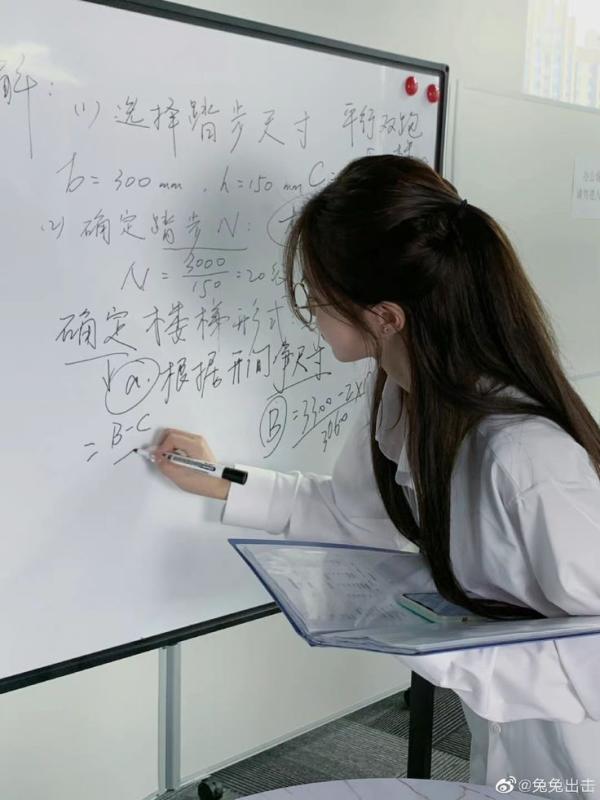 解：
(1) 选择踏步尺寸 平行双跑
b=300mm，h=150mm C=
(2) 确定踏步N：
N=3000/150=20级
确定楼梯形式
a. 根据开间净尺寸
B=3300-2×1
3060
=B-C
@兔兔出击